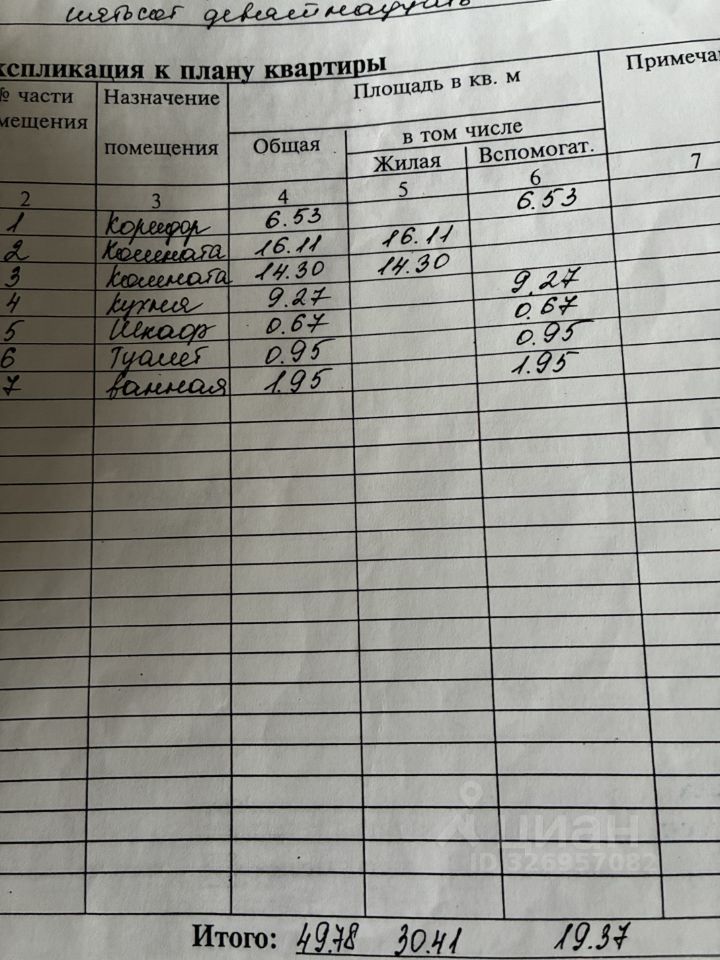 пятьсот девятнадцать
кспликация к плану квартиры
№ части
мещения
Назначение
помещения
Площадь в кв. м
Общая
в том числе
Жилая
Вспомогат.
Примечан
2 3 4 5 6 7
1 Коридор 6.53 6.53
2 Комната 16.11 16.11
3 Комната 14.30 14.30
4 Кухня 9.27 9.27
5 Шкаф 0.67 0.67
6 Туалет 0.95 0.95
7 ванная 1.95 1.95
циан
ID 326957082
Итого: 49.78 30.41 19.37